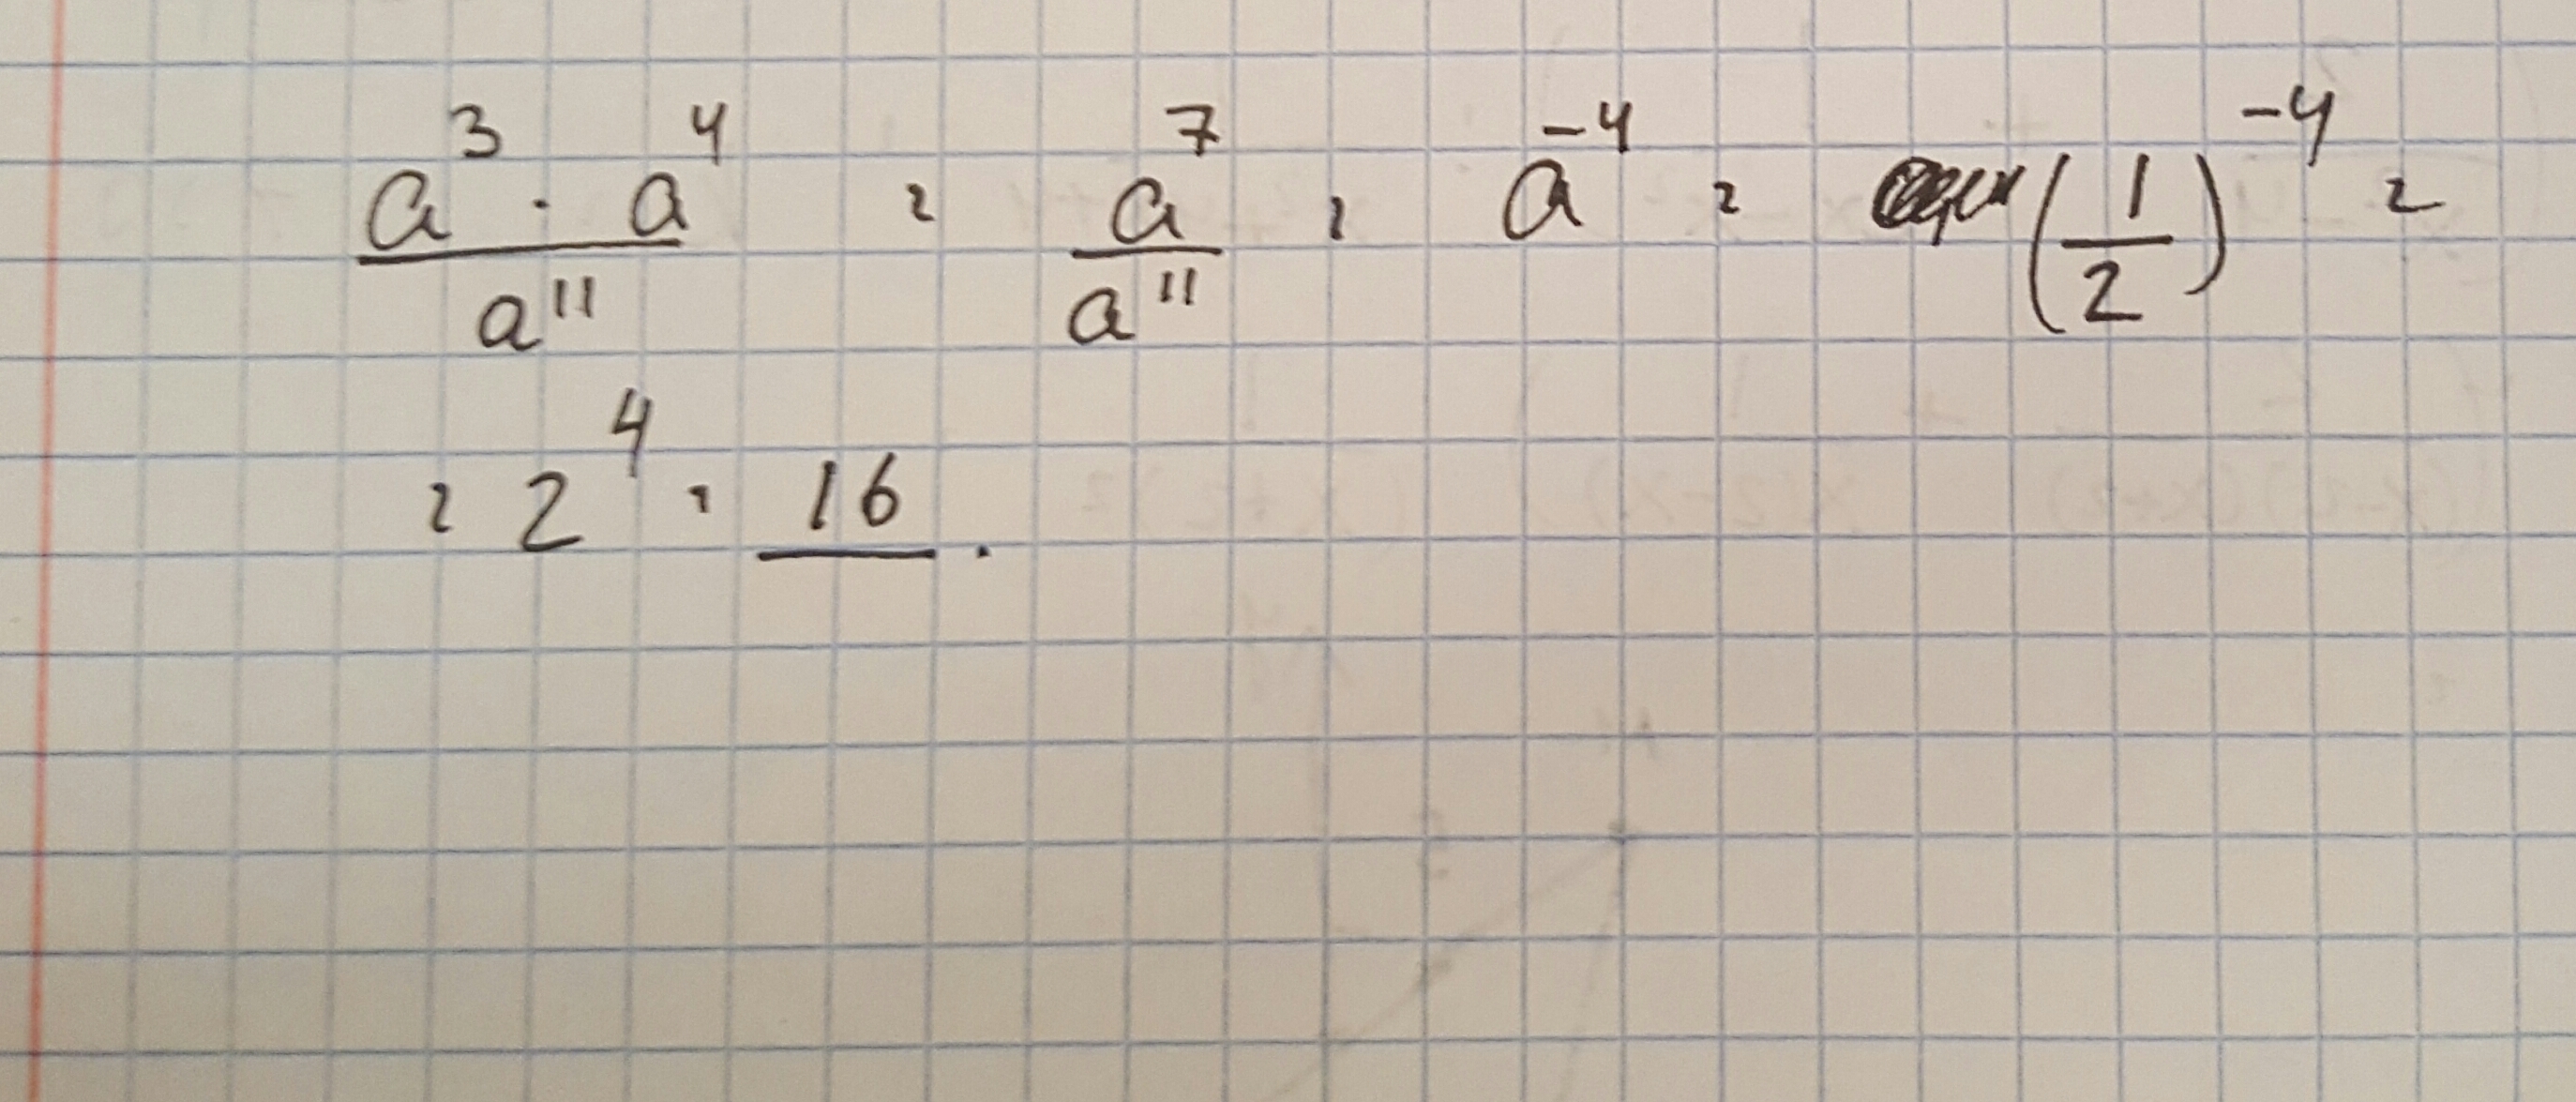 a³ · a⁴ / a¹¹ = a⁷ / a¹¹ = a⁻⁴ = (1/2)⁻⁴ =
= 2⁴ = 16.